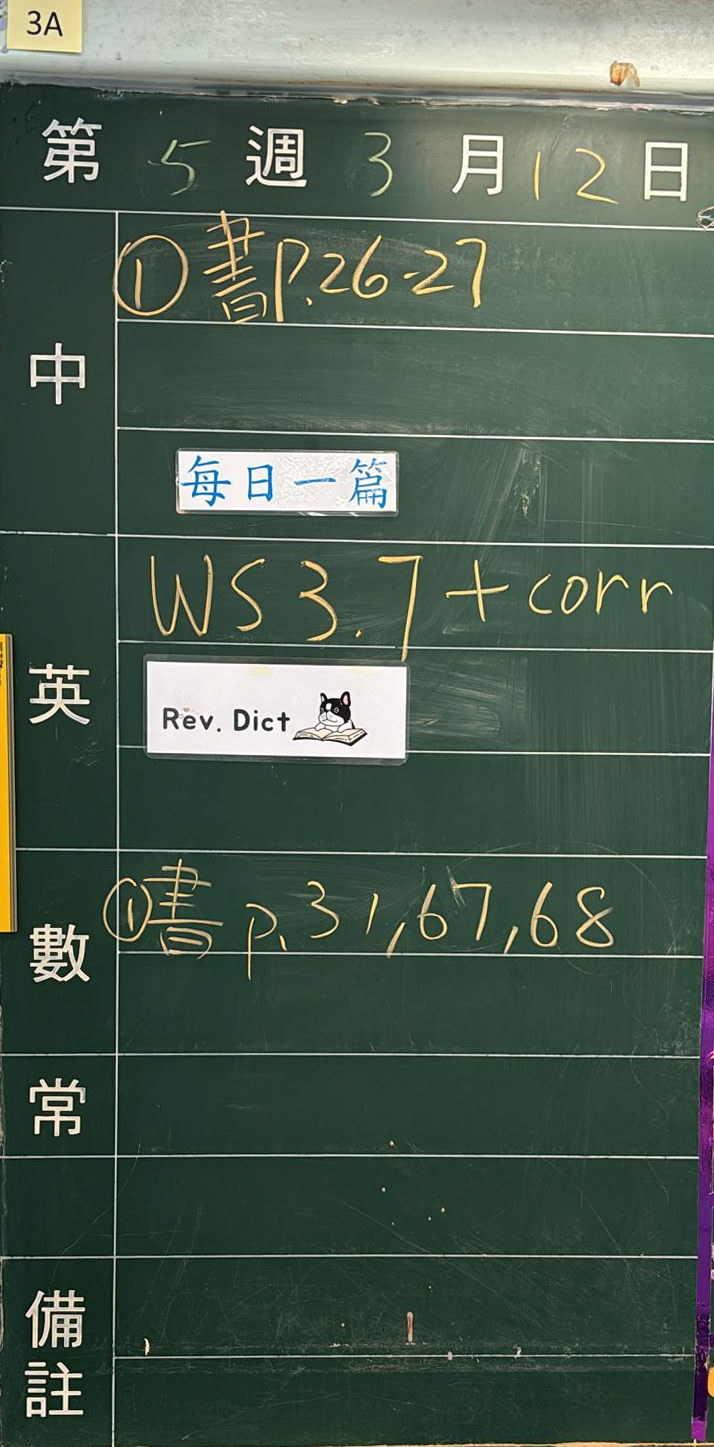 3A
第5週3月12日
中
①書p.26-27
每日一篇
英
WS 3.7 + corr
Rev. Dict
數
①書 p.31,67,68
常
備註